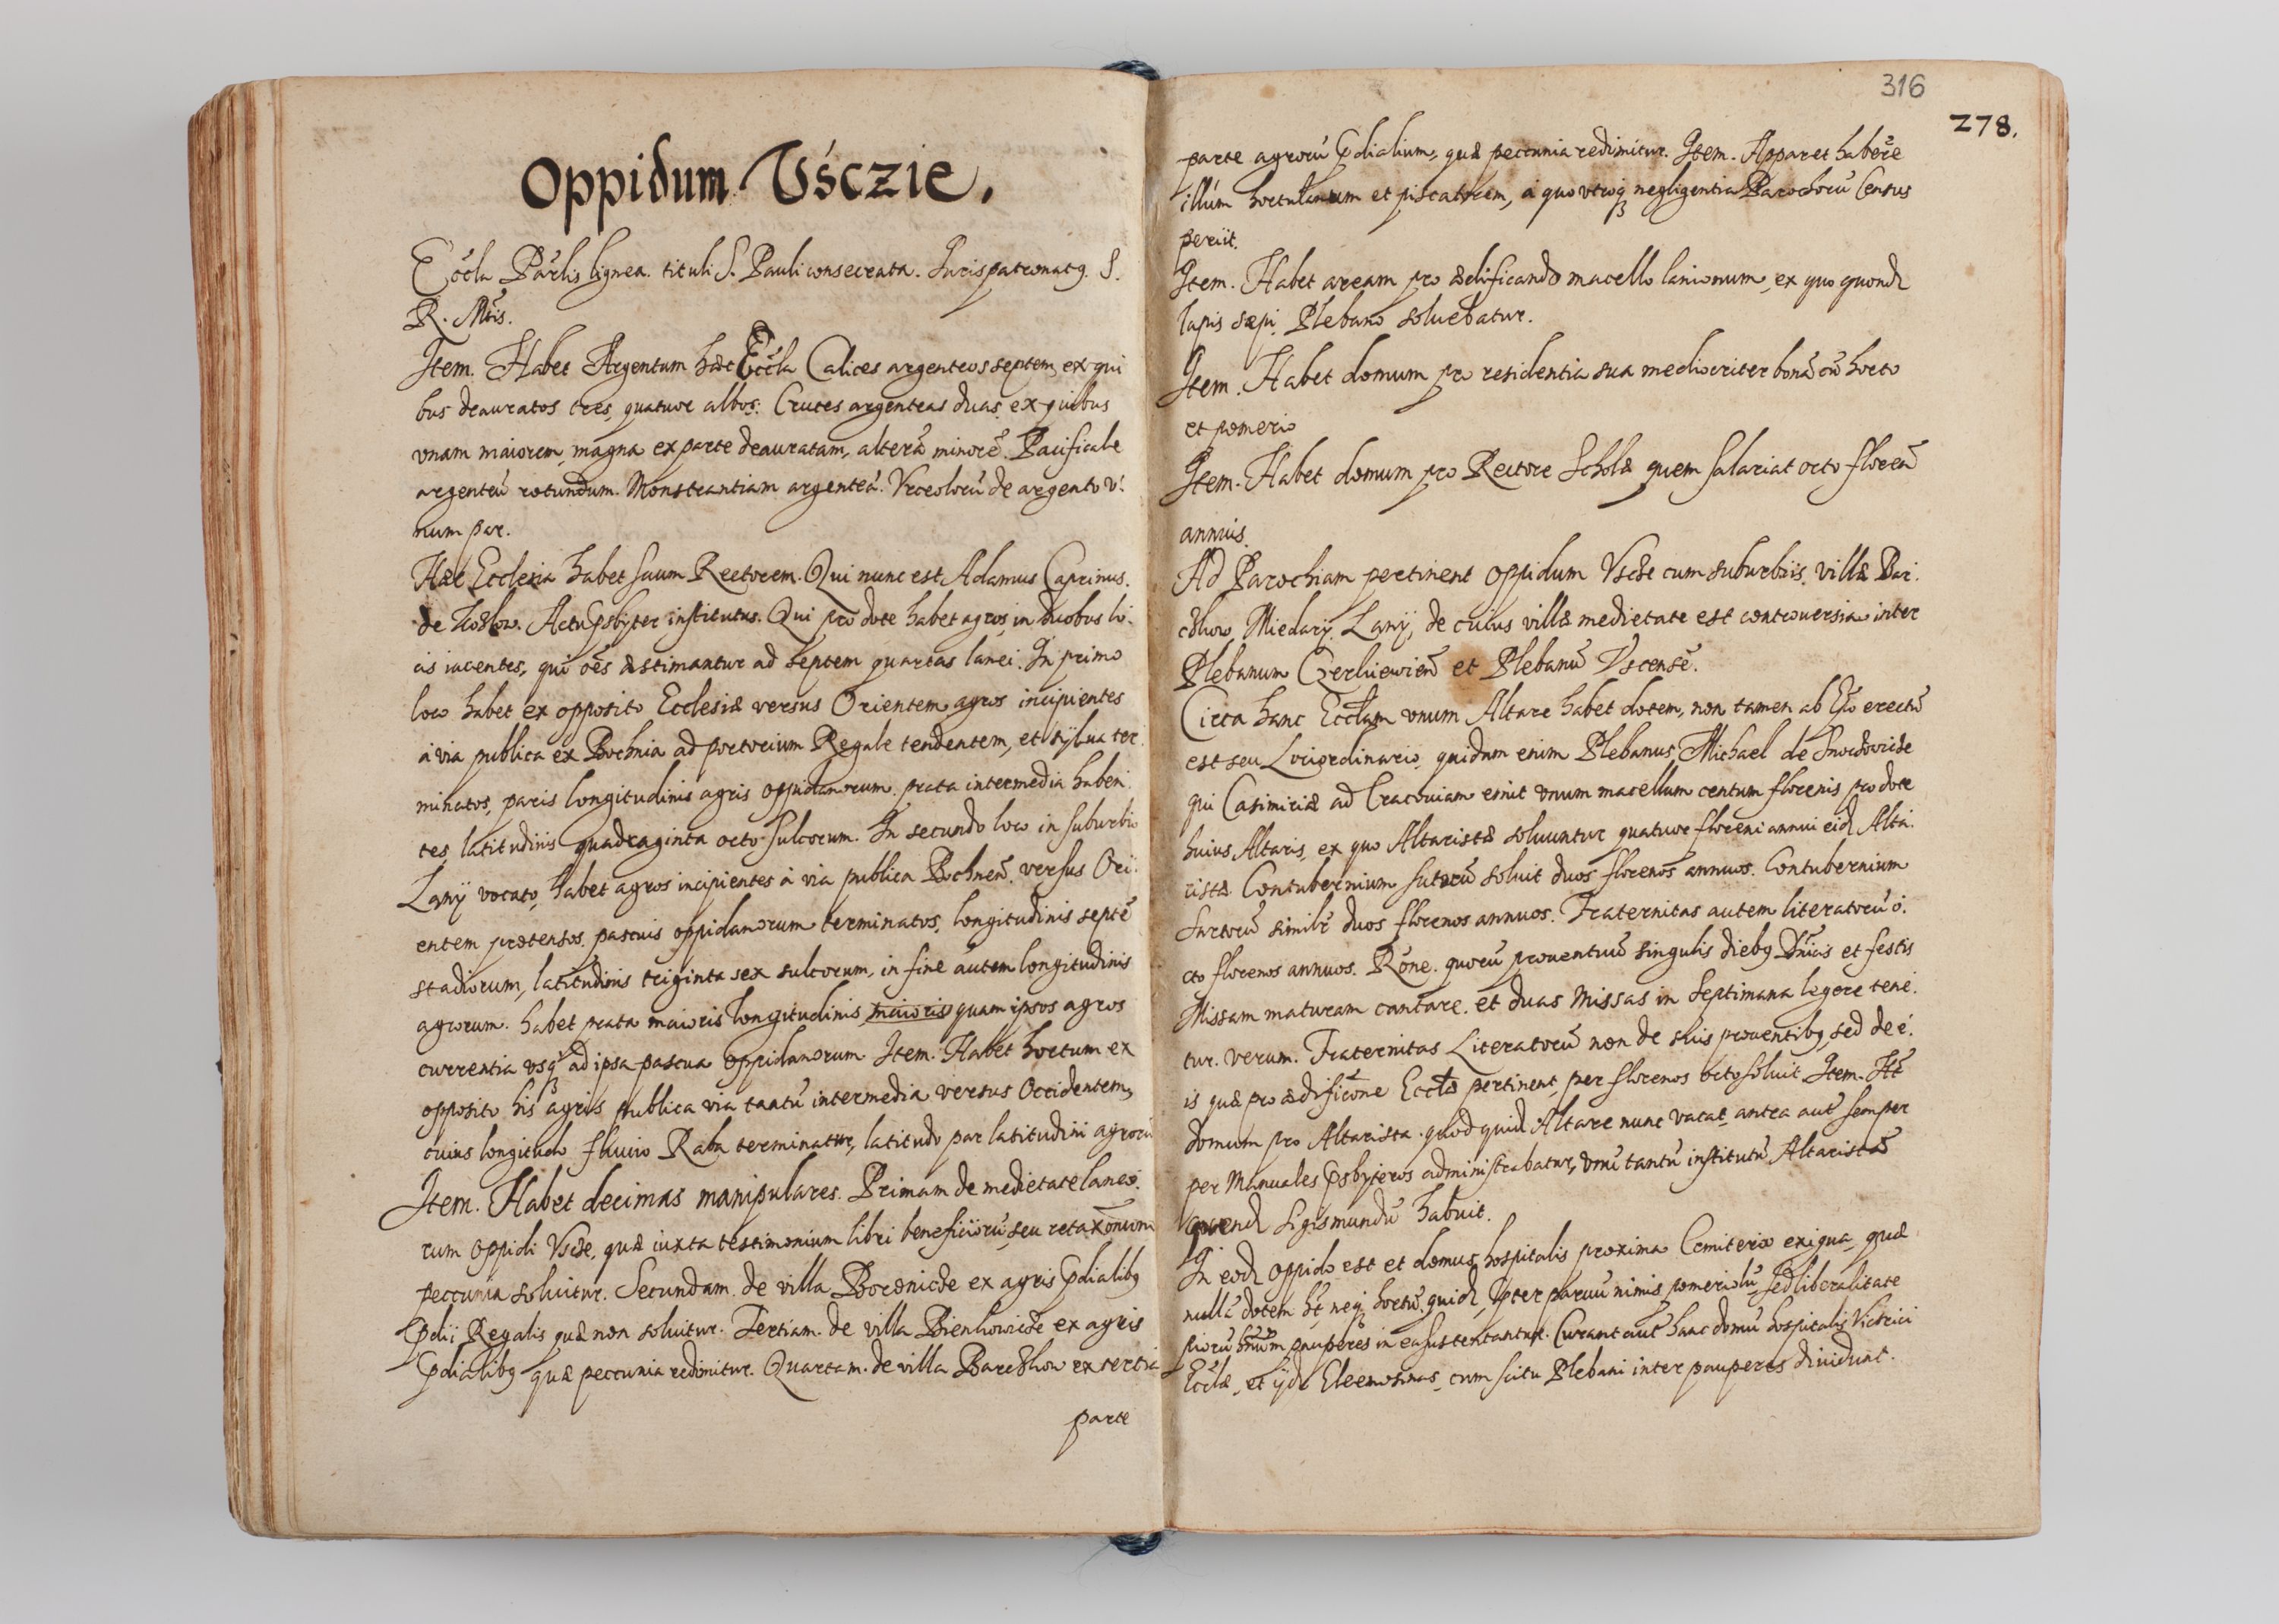 Oppidum Uśczie.
Eccla Parlis lignea. tituli S. Pauli consecrata. Iuris patronatq. S.
R. Mtis.
Item. Habet Argentum haec Eccla Calices argenteos septem, ex qui
bus deauratos tres, quatuor albos: Cruces argenteas duas, ex quibus
vnam maiorem, magna ex parte deauratam, alterā minorē. Pacificale
argenteū rotundum. Monstrantiam argenteā. Vrceolorū de argento v:
num par.
Haec Ecclesia habet suum Rectorem. Qui nunc est Adamus Caprinus.
de Kozlow. Actu Psbyter institutus. Qui pro dote habet agros in duobus lo:
cis iacentes, qui oēs aestimantur ad septem quartas lanei. In primo
loco habet ex opposito Ecclesiae versus Orientem agros incipientes
à via publica ex Bochnia ad portorium Regale tendentem, et sylua ter:
minatos, paris longitudinis agris oppidanorum. prata intermedia haben:
tes, latitudinis quadraginta octo sulcorum. In secundo loco in suburbio
Lany vocato, habet agros incipientes à via publica Bochneñ. versus Ori:
entem protensos. pascuis oppidanorum terminatos, longitudinis septē
stadiorum, latitudinis triginta sex sulcorum, in fine autem longitudinis
agrorum. habet prata maioris longitudinis maioris quam ipsos agros
currentia vsq ad ipsa pascua oppidanorum. Item. Habet hortum ex
opposito his agris publica via tantū intermedia versus Occidentem,
cuius longitudo fluuio Raba terminatur, latitudo par latitudini agrorū
Item. Habet decimas manipulares. Primam de medietate laneo:
rum oppidi Vscze, quae iuxta testimonium libri beneficiorū, seu retaxōnum
peccunia soluitur. Secundam. de villa Boronicze ex agris Pdialibq
Pdii Regalis quae non soluitur. Tertiam. de villa Bienkowicze ex agris
Pdialibq quae peccunia redimitur. Quartam. de villa Barczkow ex tertia
parte
316
278.
parte agrorū Pdialium, quae peccunia redimitur. Item. Apparet habere
illum hortulanum et piscatorem, à quo vtroq negligentia Parochorū Census
periit.
Item. Habet aream pro aedificando macello lanionum, ex quo quond
lapis saepi Plebano soluebatur.
Item. Habet domum pro residentia sua mediocriter bonā cū horto
et pomerio
Item. Habet domum pro Rectore Scholae quem salariat octo floreñ
annuis.
Ad Parochiam pertinent oppidum Vscze cum suburbiis, villae Bar:
czkow, Miedary, Lany, de cuius villae medietate est controuersia inter
Plebanum Czerliewieñ et Plebanū Vscensē.
Circa hanc Ecclam vnum Altare habet dotem, non tamen ab Epo erectū
est seu Lociordinario, quidam enim Plebanus, Michael de
qui Casimiriae ad Cracouiam emit vnum macellum centum florenis pro dote
huius Altaris, ex quo Altaristae soluuntur quatuor floreni annui eid Alta:
ristae Contubernium sutorū soluit duos florenos annuos. Contubernium
Sartorū similr duos florenos annuos. Fraternitas autem literatorū o:
cto florenos annuos. Rōne. quorū prouentuū singulis diebq Dnicis et festis
Missam maturam cantare. et duas Missas in Septimana legere tene:
tur. verum. Fraternitas Literatorū non de suis prouentibq, sed de e:
is quae pro aedificōne Ecclae pertinent, per florenos octo soluit. Item. Ht
domum pro Altarista. quod quid Altare nunc vacat, antea aut semper
per Manuales Psbyteros administrabatur, vnū tantū institutū Altaristā
quend Sigismundū habuit.
In eod oppido est et domus hospitalis proxima Cemiterio exigua, quae
nullā dotem ht, neq hortū quid, Ppter paruū nimis pomeriolū, sed liberalitate
piorū hnum pauperes in ea sustentantur. Curant aut hanc domū hospitalis Victrici
Ecclae, et ijde Eleemosinas, cum scitu Plebani inter pauperes diuidunt.